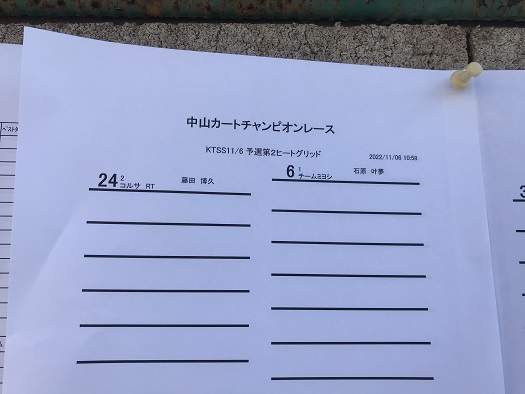 中山カートチャンピオンレース
KTSS11/6 予選第2ヒートグリッド
2022/11/06 10:58
24 2 コルサ RT 藤田 博久
6 1 チームミヨシ 石原 叶夢
3